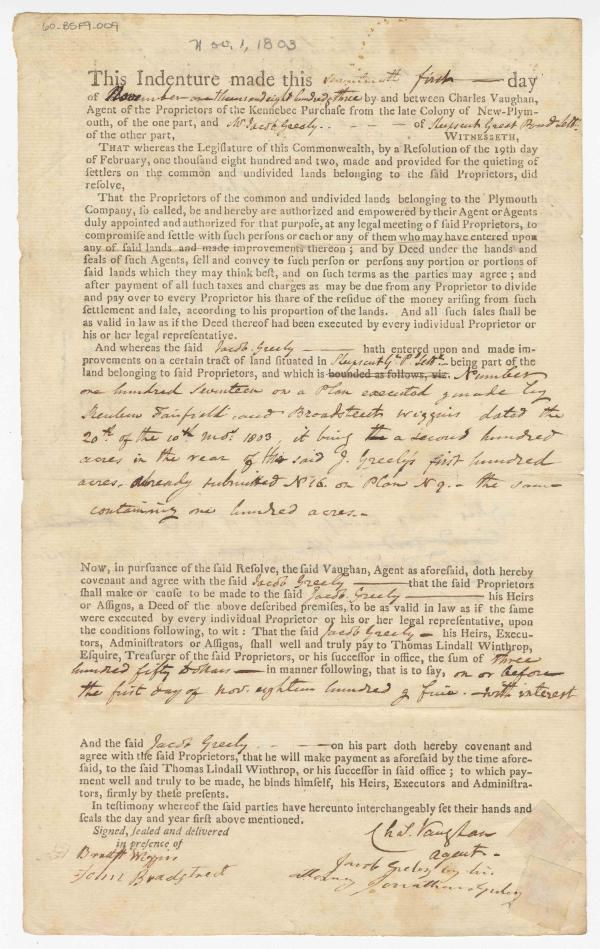 60-BSF9-009
Nov. 1, 1803
This Indenture made this first day
of November one thousand eight hundred & three by and between Charles Vaughan,
Agent of the Proprietors of the Kennebec Purchase from the late Colony of New-Plym-
outh, of the one part, and Mr. Jacob Greely. - - - of Great Pond Settt.
of the other part, WITNESSETH,
THAT whereas the Legislature of this Commonwealth, by a Resolution of the 19th day
of February, one thousand eight hundred and two, made and provided for the quieting of
settlers on the common and undivided lands belonging to the said Proprietors, did
resolve,
That the Proprietors of the common and undivided lands belonging to the Plymouth
Company, so called, be and hereby are authorized and empowered by their Agent or Agents
duly appointed and authorized for that purpose, at any legal meeting of said Proprietors, to
compromise and settle with such persons or each or any of them who may have entered upon
any of said lands and made improvements thereon ; and by Deed under the hands and
seals of such Agents, sell and convey to such person or persons any portion or portions of
said lands which they may think best, and on such terms as the parties may agree ; and
after payment of all such taxes and charges as may be due from any Proprietor to divide
and pay over to every Proprietor his share of the residue of the money arising from such
settlement and sale, according to his proportion of the lands. And all such sales shall be
as valid in law as if the Deed thereof had been executed by every individual Proprietor or
his or her legal representative.
And whereas the said Jacob Greely hath entered upon and made im-
provements on a certain tract of land situated in Gt P Settt. being part of the
land belonging to said Proprietors, and which is bounded as follows, viz. Number
one hundred seventeen on a Plan executed & made by
Reuben Fairfield and Broadstreet Wiggins dated the
20th. of the 10th mo. 1803, it being the a second hundred
acres in the rear of the said J. Greely's first hundred
acres. already submitted No 16. on Plan No 9. - the same
containing one hundred acres.-
Now, in pursuance of the said Resolve, the said Vaughan, Agent as aforesaid, doth hereby
covenant and agree with the said Jacob Greely that the said Proprietors
shall make or cause to be made to the said Jacob Greely his Heirs
or Assigns, a Deed of the above described premises, to be as valid in law as if the same
were executed by every individual Proprietor or his or her legal representative, upon
the conditions following, to wit : That the said Jacob Greely - his Heirs, Execu-
tors, Administrators or Assigns, shall well and truly pay to Thomas Lindall Winthrop,
Esquire, Treasurer of the said Proprietors, or his successor in office, the sum of three
hundred fifty Dollars - in manner following, that is to say, on or before
the first day of Nov. eighteen hundred & five. - with interest
And the said Jacob Greely - - - on his part doth hereby covenant and
agree with the said Proprietors, that he will make payment as aforesaid by the time afore-
said, to the said Thomas Lindall Winthrop, or his successor in said office ; to which pay-
ment well and truly to be made, he binds himself, his Heirs, Executors and Administra-
tors, firmly by these presents.
In testimony whereof the said parties have hereunto interchangeably set their hands and
seals the day and year first above mentioned.
Signed, sealed and delivered
in presence of
Chs. Vaughan
agent -
Bradst Wiggin
John Bradstreet
Jacob Greley by his
attorney Jonathan Greley